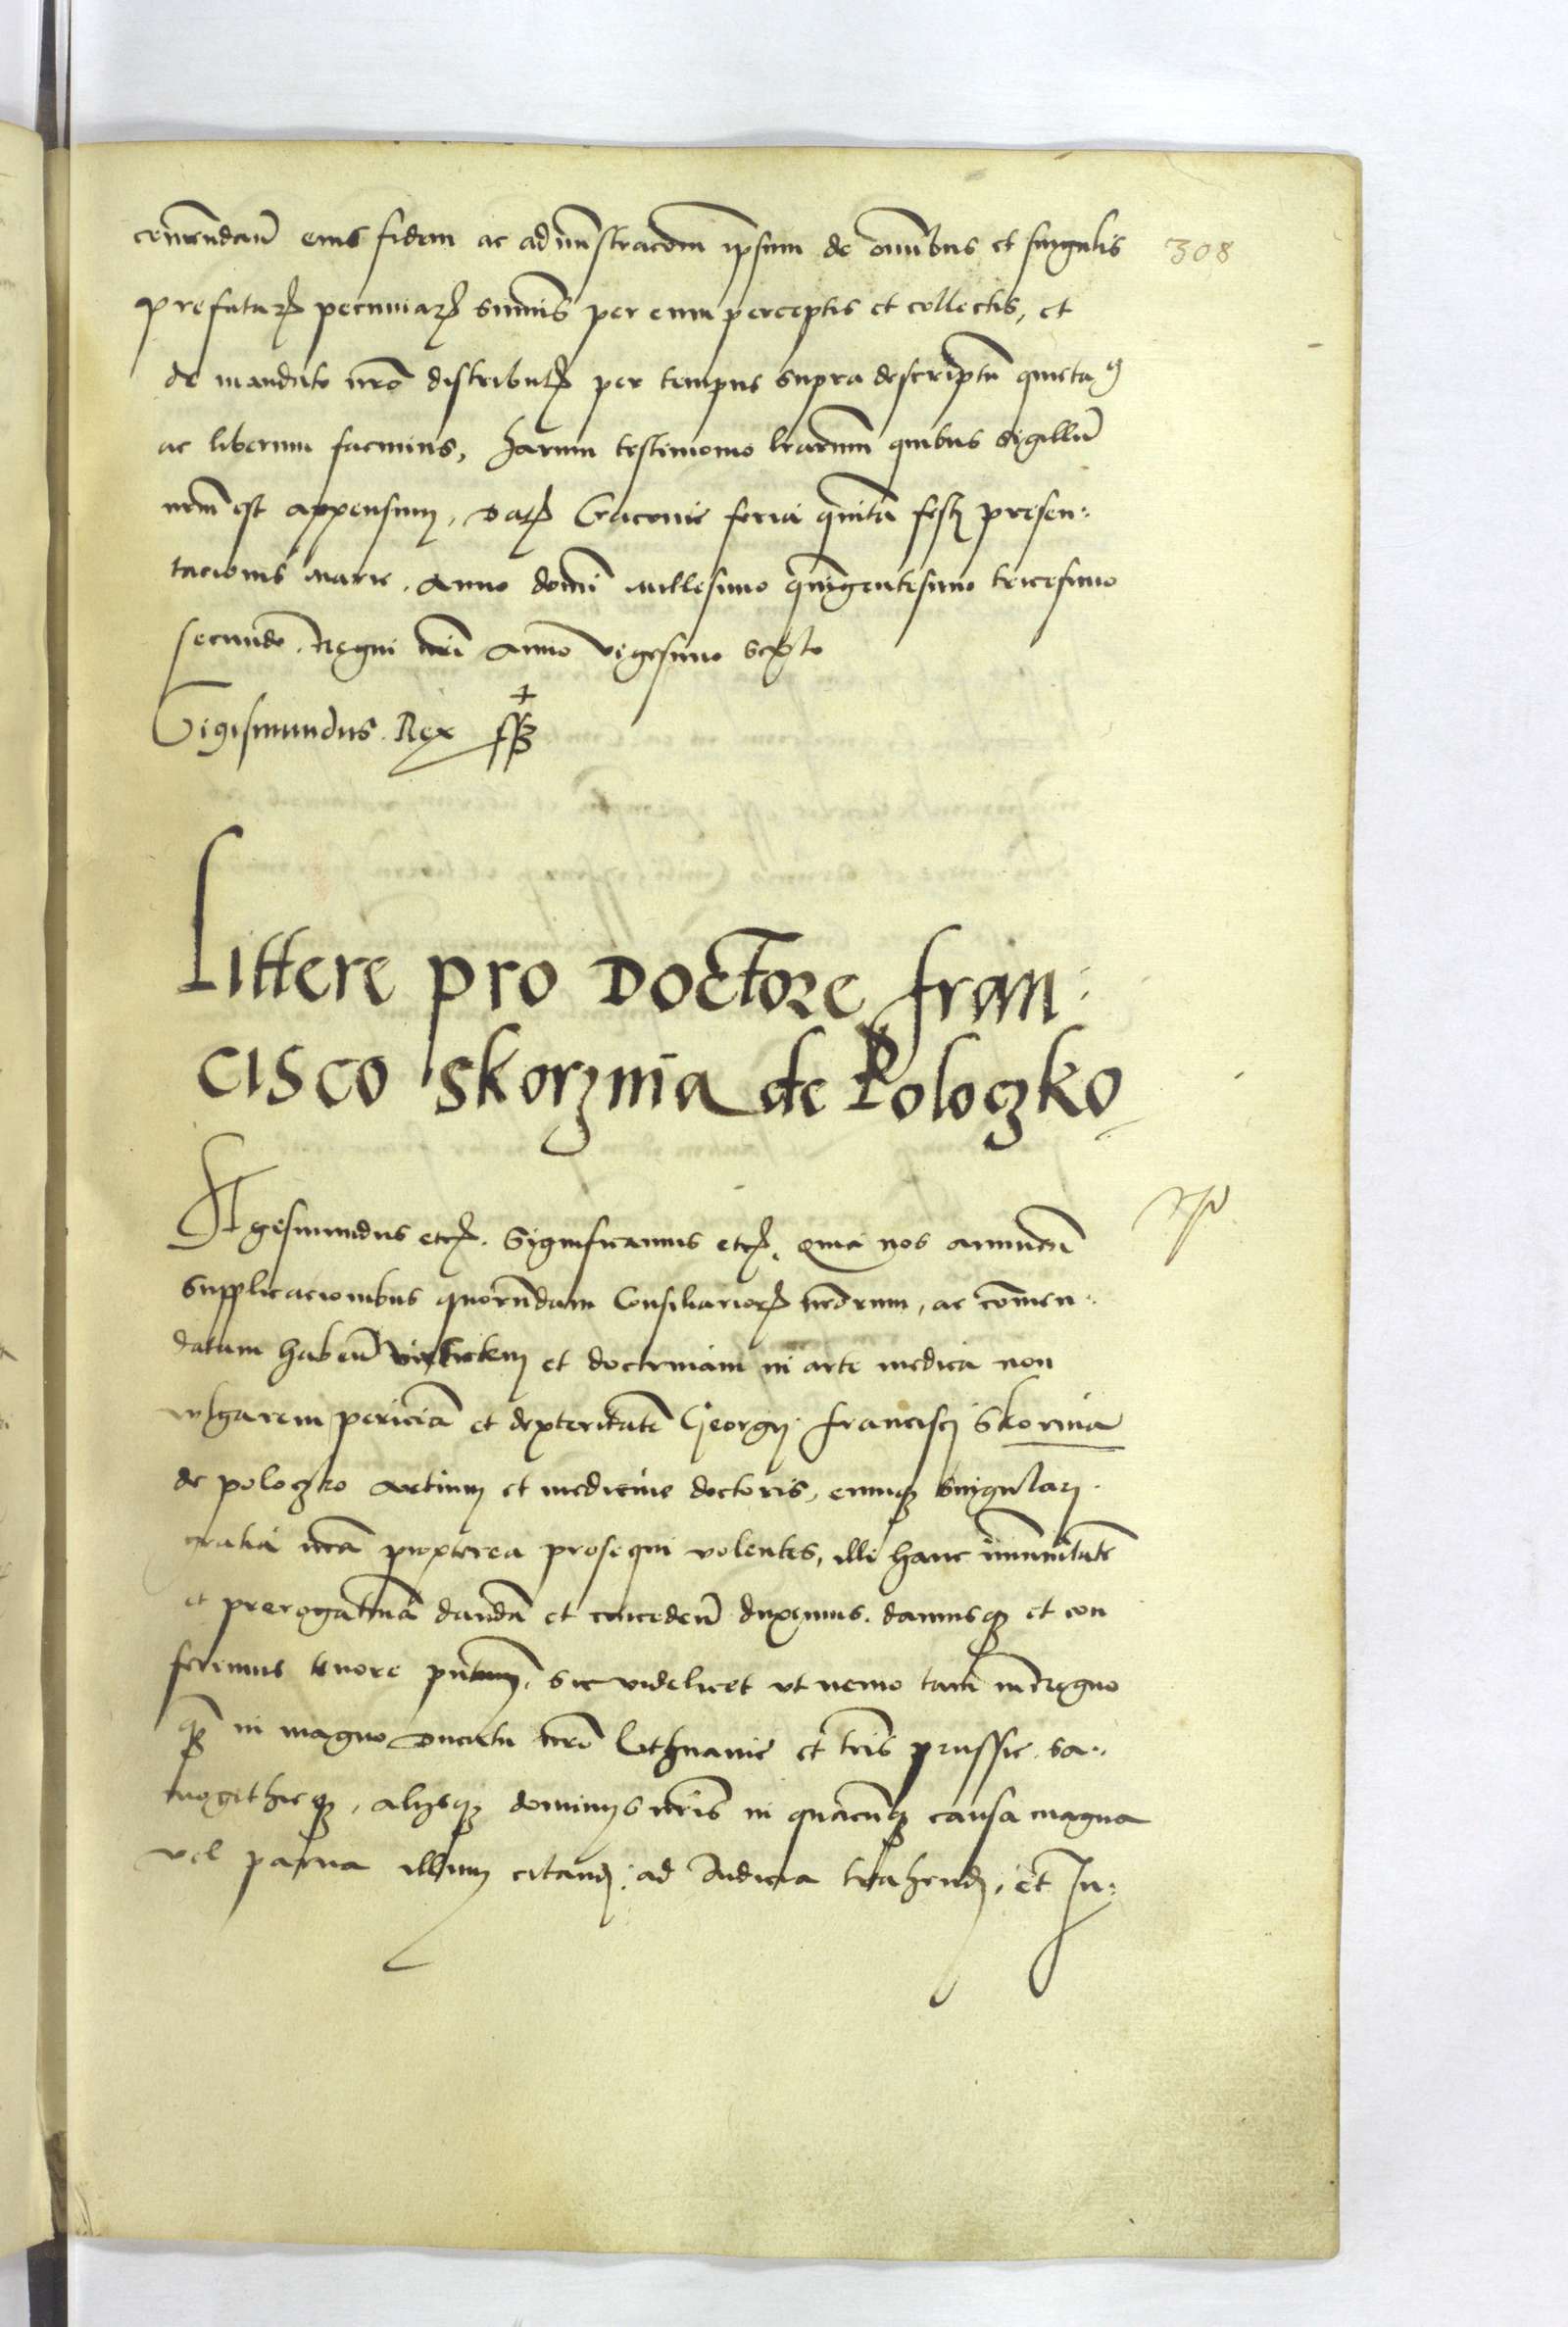 308
comendan̄ eius fidem ac administracōm ipsum de omībus et singulis
prefatarꝝ pecuniarꝝ sum̄is per eum perceptis et collectis, et
de mandato nrō distributꝝ per tempus supra descriptū quieta͡ɜ
ac liberum facimus, harum testimonio lrarum quibus sigillū
nrm̄ est appensum, Datꝝ Cracovie feria quīta festj presen:
tacionis Marie. Anno domī millesimo quīgentesimo tricesimo
secundo. Regni nrī anno vigesimo sexto
Sigismundus. Rex sspt
Littere pro Doctore fran:
cisco skorznia de Poloczko
Sigismundus etcꝝ. Significamus etcꝝ. Quia nos annuen̄
supplicacionibus quorūdam Consiliariorꝝ nr̄orum, ac comen:
datam haben̄ virtutem et doctrinam in arte medica non
vulgarem periciā et dexteritatē Georgij francisci Skorina
de poloczko artium et medicine doctoris, eumqꝫ singularj
gratia nrā propterea prosequi volentes, illi hanc immunitatē
et prerogatiuā dandā et conceden̄ duximus. damusqꝫ et con
ferimus tenore pn̄tium, sic videlicet vt nemo tam in Regno
qꝫ in magno Ducatu nrō Lithuanie et trīs prussie. Sa:
mogithieqꝫ, alijsqꝫ dominijs nrīs in quacūqꝫ causa magna
vel parua illum citandj, ad Iudicia trahendj, et In: